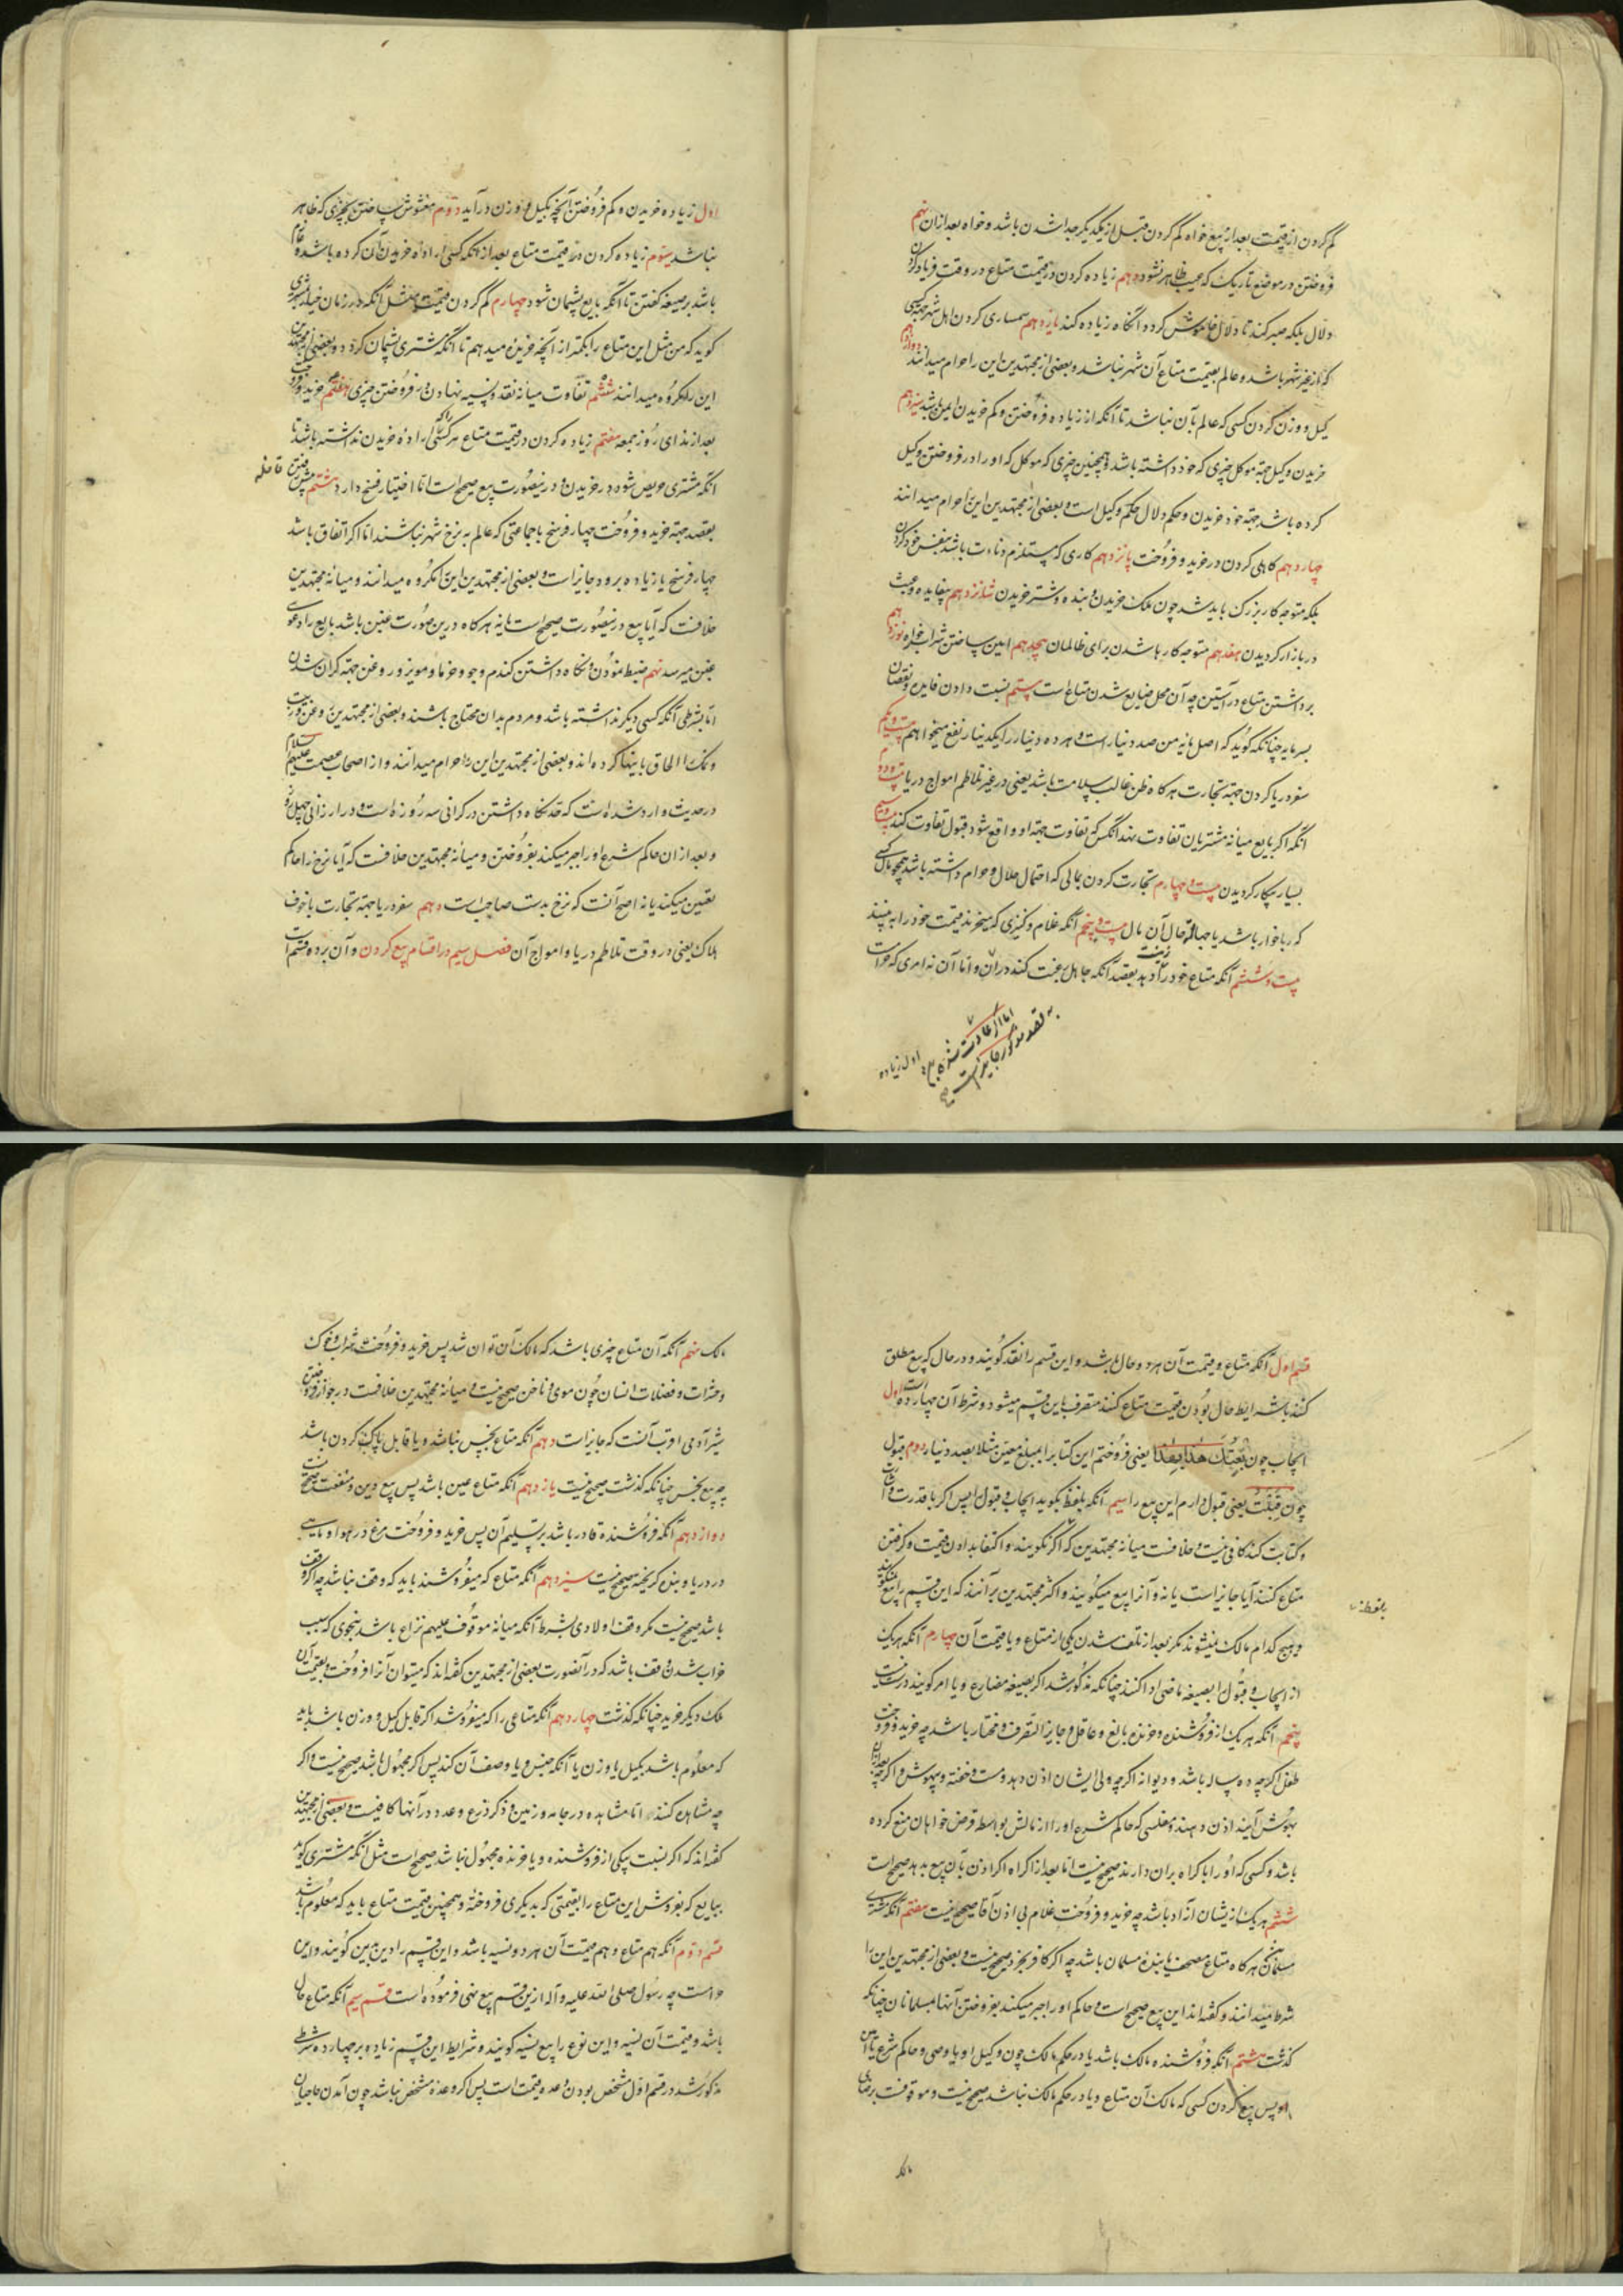 کم کردن از قیمت بعد از بیع خواه کم کردن قبل از یکدیگر جدا شدن باشد و خواه بعد از ان نهم
فروختن در موضع تاریک که عیب ظاهر نشود دهم زیاده کردن در قیمت متاع در وقت فریاد کردن
دلال بلکه صبر کند تا دلال خاموش کردد انکاه زیاده کند یازدهم سمساری کردن اهل شهر جهة کسی
که از غیر شهر باشد و عالم بقیمت متاع آن شهر نباشد و بعضی از مجتهدین این را حرام میدانند دوازدهم
کیل و وزن کردن کسی که عالم بآن نباشد تا آنکه از زیاده فروختن و کم خریدن ایمن باشد سیزدهم
خریدن وکیل جهة موکل چیزی که خود داشته باشد و همچنین چیزی که موکل که او را در فروختن وکیل
کرده باشد جهة خود خریدن و حکم دلال حکم وکیل است و بعضی از مجتهدین این را حرام میدانند
چهاردهم کاهلی کردن در خرید و فروخت پانزدهم کاری که مستلزم دناءت باشد بنفس خود کردن
بلکه متوجه کار بزرک باید شد چون ملک خریدن و بنده و شتر خریدن شانزدهم بیفایده و عبث
در بازار کردیدن هفدهم متوجه کارها شدن برای ظالمان هجدهم امین ساختن شراب خواره نوزدهم
برداشتن متاع در آستین چه آن محل ضایع شدن متاع است بیستم نسبت دادن فایده و نقصان
بسرمایه چنانکه کوید که اصل مایه من صد دینار است و هر ده دینار را یکدینار نفع میخواهم بیست و یکم
سفر دریا کردن جهة تجارت هر کاه ظن غالب سلامت باشد یعنی در غیر تلاطم امواج دریا بیست و دوم
آنکه اکر بایع میانه مشتریان تفاوت نهد آنکس که تفاوت جهة او واقع شود قبول تفاوت کند بیست و سیم
بسیار بیکار کردیدن بیست و چهارم تجارت کردن بمالی که احتمال حلال و حرام داشته باشد همچو مال کسی
که رباخوار باشد یا جهاله حال آن مال بیست و پنجم آنکه غلام و کنیزی که میخرد قیمت خود را به بیند
بیست و ششم آنکه متاع خود را زینت دهد بقصد آنکه جاهل رغبت کند در ان و اما آن نه امری که حرامست
اما اکر عادت شده باشد
نه بقصد مذکور جایز است
اول زیاده
اول زیاده خریدن و کم فروختن آنچه بکیل و وزن در آید دویم مغشوش ساختن بچیزی که ظاهر
نباشد سیوم زیاده کردن در قیمت متاع بعد از آنکه کسی اراده خریدن آن کرده باشد و عازم
باشد بر صیغه کفتن تا آنکه بایع پشیمان شود چهارم کم کردن قیمت مثل آنکه در زمان خیار بمشتری
کوید که من مثل این متاع را بکمتر از آنچه خریده میدهم تا آنکه مشتری پشیمان کردد و بعضی از مجتهدین
این را مکروه میدانند ششم تفاوت میانه نقد و نسیه نهادن در فروختن چیزی هفتم خرید و فروخت
بعد از ندای روز جمعه هفتم زیاده کردن در قیمت متاع هر کسی را که اراده خریدن نداشته باشد تا
آنکه مشتری حریص شود در خریدن و در ینصورت بیع صحیح است اما اختیار فسخ دارد هشتم پیش رفتن قافله
بقصد جهة خرید و فروخت چهار فرسخ با جماعتی که عالم به نرخ شهر نباشند اما اکر اتفاق باشد
چهار فرسخ یا زیاده برود جایز است و بعضی از مجتهدین این را مکروه میدانند و میانه مجتهدین
خلافست که آیا بیع در ینصورت صحیح است یا نه هر کاه درین صورت غبن باشد بایع را دعوی
غبن میرسد نهم ضبط نمودن و نکاه داشتن کندم و جو و خرما و مویز و روغن جهة کران شدن
اما بشرطی آنکه کسی دیکر نداشته باشد و مردم بدان محتاج باشند و بعضی از مجتهدین روغن زیت
و نمک را الحاق باینها کرده اند و بعضی از مجتهدین این را حرام میدانند و از اصحاب عصمت علیهم السلام
در حدیث وارد شده است که حد نکاه داشتن در کرانی سه روز است و در ارزانی چهل روز
و بعد از ان حاکم شرع او را جبر میکند بفروختن و میانه مجتهدین خلافست که آیا نرخ را حاکم
تعیین میکند یا نه اصح آنست که نرخ بدست صاحب است دهم سفر دریا جهة تجارت با خوف
هلاک یعنی در وقت تلاطم دریا و امواج آن فصل سیم در اقسام بیع کردن و آن بر ده قسم است
قسم اول آنکه متاع و قیمت آن هر دو حال باشد و این قسم را نقد کویند و در حال که بیع مطلق
کنند باشرایط حال بودن قیمت متاع کنند متصرف باین قسم میشود و شرط آن چهارده است اول
ایجاب چون بعتک هذا بهذا یعنی فروختم این کتاب را بمبلغ معین مثلا بصد دینار دوم قبول
چون قبلت یعنی قبول دارم این بیع را سیم آنکه بلفظ بکوید ایجاب و قبول را پس اکر با قدرت و اشارت
و کتابت کند کافی نیست و خلافست میانه مجتهدین که اکر نکویند و اکتفا بدادن قیمت و کرفتن
متاع کنند آیا جایز است یا نه و آنرا بیع میکویند و اکثر مجتهدین بر آنند که این قسم را بیع نمیکویند
و هیچ کدام مالک نمیشوند مکر بعد از تلف شدن یکی از متاع و یا قیمت آن چهارم آنکه هر یک
از ایجاب و قبول را بصیغه ماضی ادا کنند چنانکه مذکور شد اکر بصیغه مضارع و یا امر کویند درست نیست
پنجم آنکه هر یک از فروشنده و خرنده بالغ و عاقل و جایز التصرف و مختار باشد چه خرید و فروخت
طفل اکر چه ده ساله باشد و دیوانه اکر چه ولی ایشان اذن دهد و مست و خفته و بیهوش و اکر چه بعد از ان
بهوش آیند اذن دهند و مفلسی که حاکم شرع او را از مالش بواسطه قرض خواهان منع کرده
باشد و کسی که او را با کراه بران دارند صحیح نیست اما بعد از اکراه اکر اذن بآن بیع بدهد صحیح است
ششم هر یک از ایشان آزاد باشد چه خرید و فروخت غلام بی اذن آقا صحیح نیست هفتم آنکه مشتری
مسلمان هر کاه متاع مصحف یا بنده مسلمان باشد چه اکر کافر بخرد صحیح نیست و بعضی از مجتهدین این را
شرط نمیدانند و کفته اند این بیع صحیح است و حاکم او را جبر میکند بفروختن آنها بمسلمانان چنانکه
کذشت هشتم آنکه فروشنده مالک باشد یا در حکم مالک چون وکیل او یا وصی و حاکم شرع یا امین
او پس بیع کردن کسی که مالک آن متاع و یا در حکم مالک نباشد صحیح نیست و موقوفست برضای
مالک
مالک نهم آنکه آن متاع چیزی باشد که مالک آن توان شد پس خرید و فروخت شراب و خوک
و حشرات و فضلات انسان چون موی و ناخن صحیح نیست و میانه مجتهدین خلافست در جواز فروختن
شیر آدمی اقرب آنست که جایز است دهم آنکه متاع نجس نباشد و یا قابل پاک کردن باشد
چه بیع نجس چنانکه کذشت صحیح نیست یازدهم آنکه متاع عین باشد پس بیع دین و منفعت صحیح نیست
دوازدهم آنکه فروشنده قادر باشد بر تسلیم آن پس خرید و فروخت مرغ در هوا و ماهی
در دریا و بنده کریخته صحیح نیست سیزدهم آنکه متاع که میفروشند باید که وقف نباشد چه اکر وقف
باشد صحیح نیست مکر وقف اولادی بشرط آنکه میانه موقوف علیهم نزاع باشد بنحوی که سبب
خراب شدن وقف باشد که در آنصورت بعضی از مجتهدین کفته اند که میتوان آنرا فروخت و بقیمت آن
ملک دیکر خرید چنانکه کذشت چهاردهم آنکه متاعی را که میفروشد اکر قابل کیل و وزن باشد باید
که معلوم باشد بکیل یا وزن یا آنکه جنس و یا وصف آن کند پس اکر مجهول باشد صحیح نیست و اکر
چه مشاهده کنند اما مشاهده در جامه و زمین و ذکر ذرع و عدد در آنها کافیست و بعضی از مجتهدین
کفته اند که اکر نسبت بیکی از فروشنده و یا خرنده مجهول نباشد صحیح است مثل آنکه مشتری کوید
ببایع که بفروش این متاع را بقیمتی که بدیکری فروخته و همچنین قیمت متاع باید که معلوم باشد
قسم دوم آنکه هم متاع و هم قیمت آن هر دو نسیه باشد و این قسم را دین بدین کویند و این
حرامست چه رسول صلی الله علیه و آله ازین قسم بیع نهی فرموده است قسم سیم آنکه متاع حال
باشد و قیمت آن نسیه و این نوع را بیع نسیه کویند و شرایط این قسم زیاده بر چهارده شرطی
مذکور شد در قسم اول مشخص بودن وعده قیمت است پس اکر وعده مشخص نباشد چون آمدن حاجیان